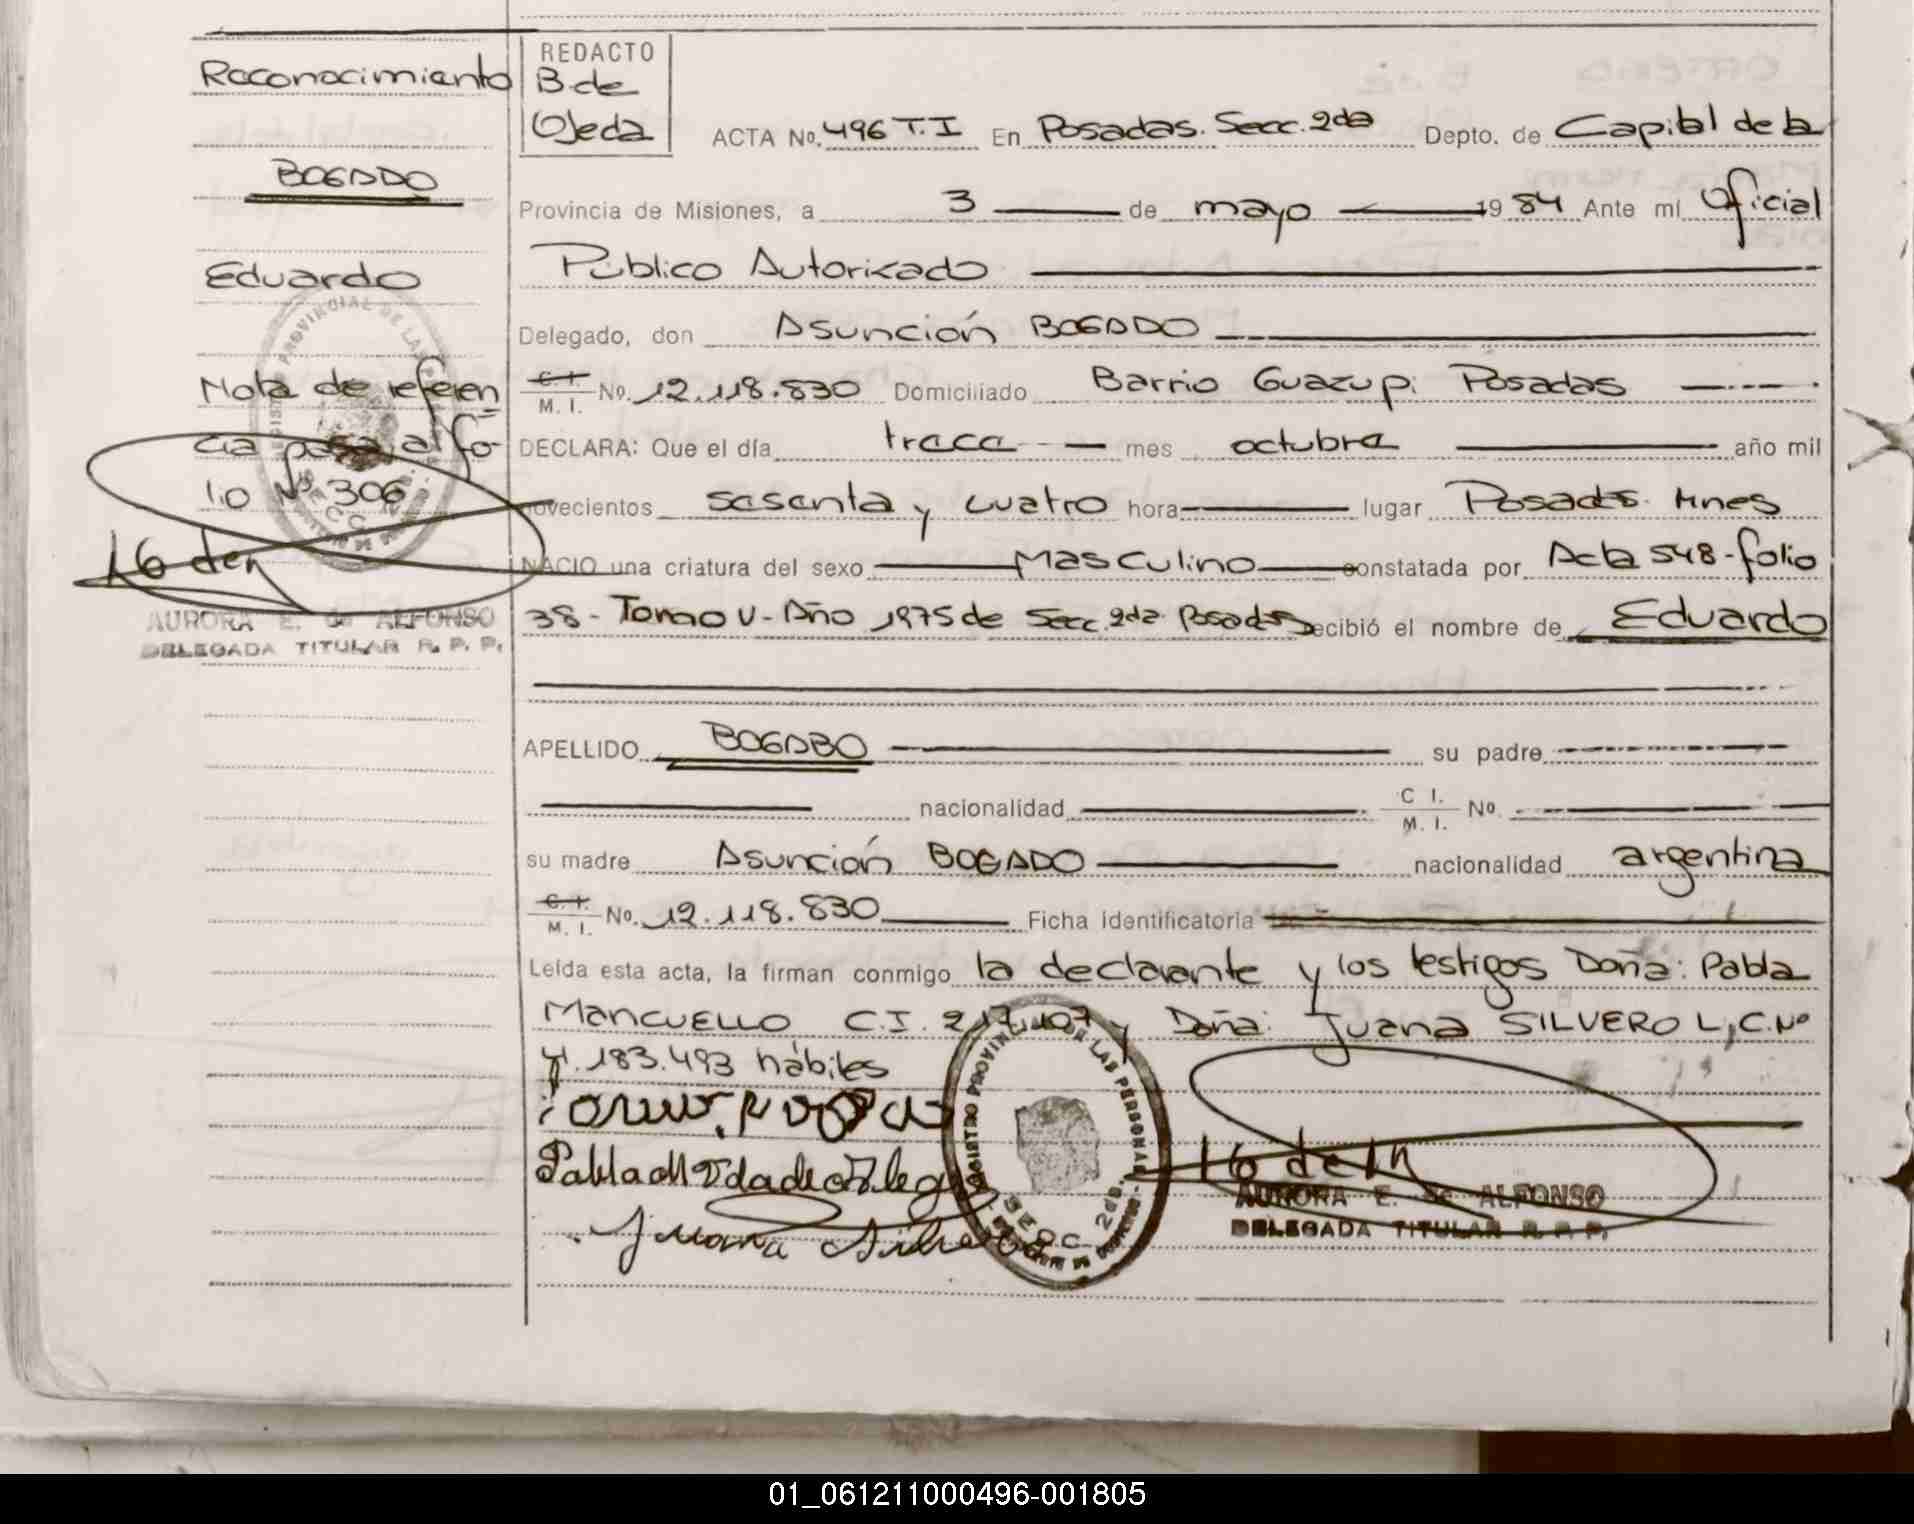 Reconocimiento
BOGADO
Eduardo
Nota de referen
cia pasa al fo-
lio Nº 306
AURORA E. de ALFONSO
DELEGADA TITULAR R. P. P.
REDACTO
B. de
Ojeda
ACTA Nº. 496 T. I En Posadas. Secc. 2da Depto. de Capital de la
Provincia de Misiones, a 3 de mayo 1984 Ante mí Oficial
Público Autorizado
Delegado, don Asunción BOGADO
C. I. M. I. Nº. 12.118.830 Domiciliado Barrio Guazupi Posadas
DECLARA: Que el día trece mes octubre año mil
novecientos sesenta y cuatro hora lugar Posadas Mnes
NACIO una criatura del sexo Masculino constatada por Acta 548-folio
38 - Tomo V - Año 1975 de Secc. 2da Posadas recibió el nombre de Eduardo
APELLIDO BOGADO su padre
nacionalidad C I. M. I. Nº.
su madre Asunción BOGADO nacionalidad argentina
C. I. M. I. Nº. 12.118.830 Ficha identificatoria
Leída esta acta, la firman conmigo la declarante y los testigos Doña: Pabla
MANCUELLO C.I. 217.107 y Doña: Juana SILVERO L.C. Nº
4.183.493 hábiles
Juana Silvero
REGISTRO PROVINCIAL DE LAS PERSONAS
SECC. 2da.
AURORA E. de ALFONSO
DELEGADA TITULAR R. P. P.
01_061211000496-001805